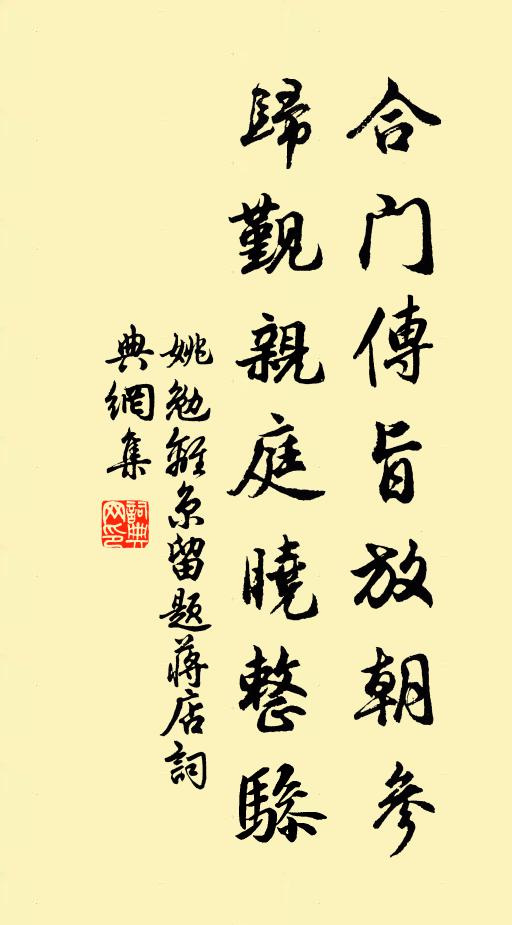 合門傳旨放朝參
歸覲親庭曉整驂
姚勉離京留題蔣店詞
典網集
詞典
网印